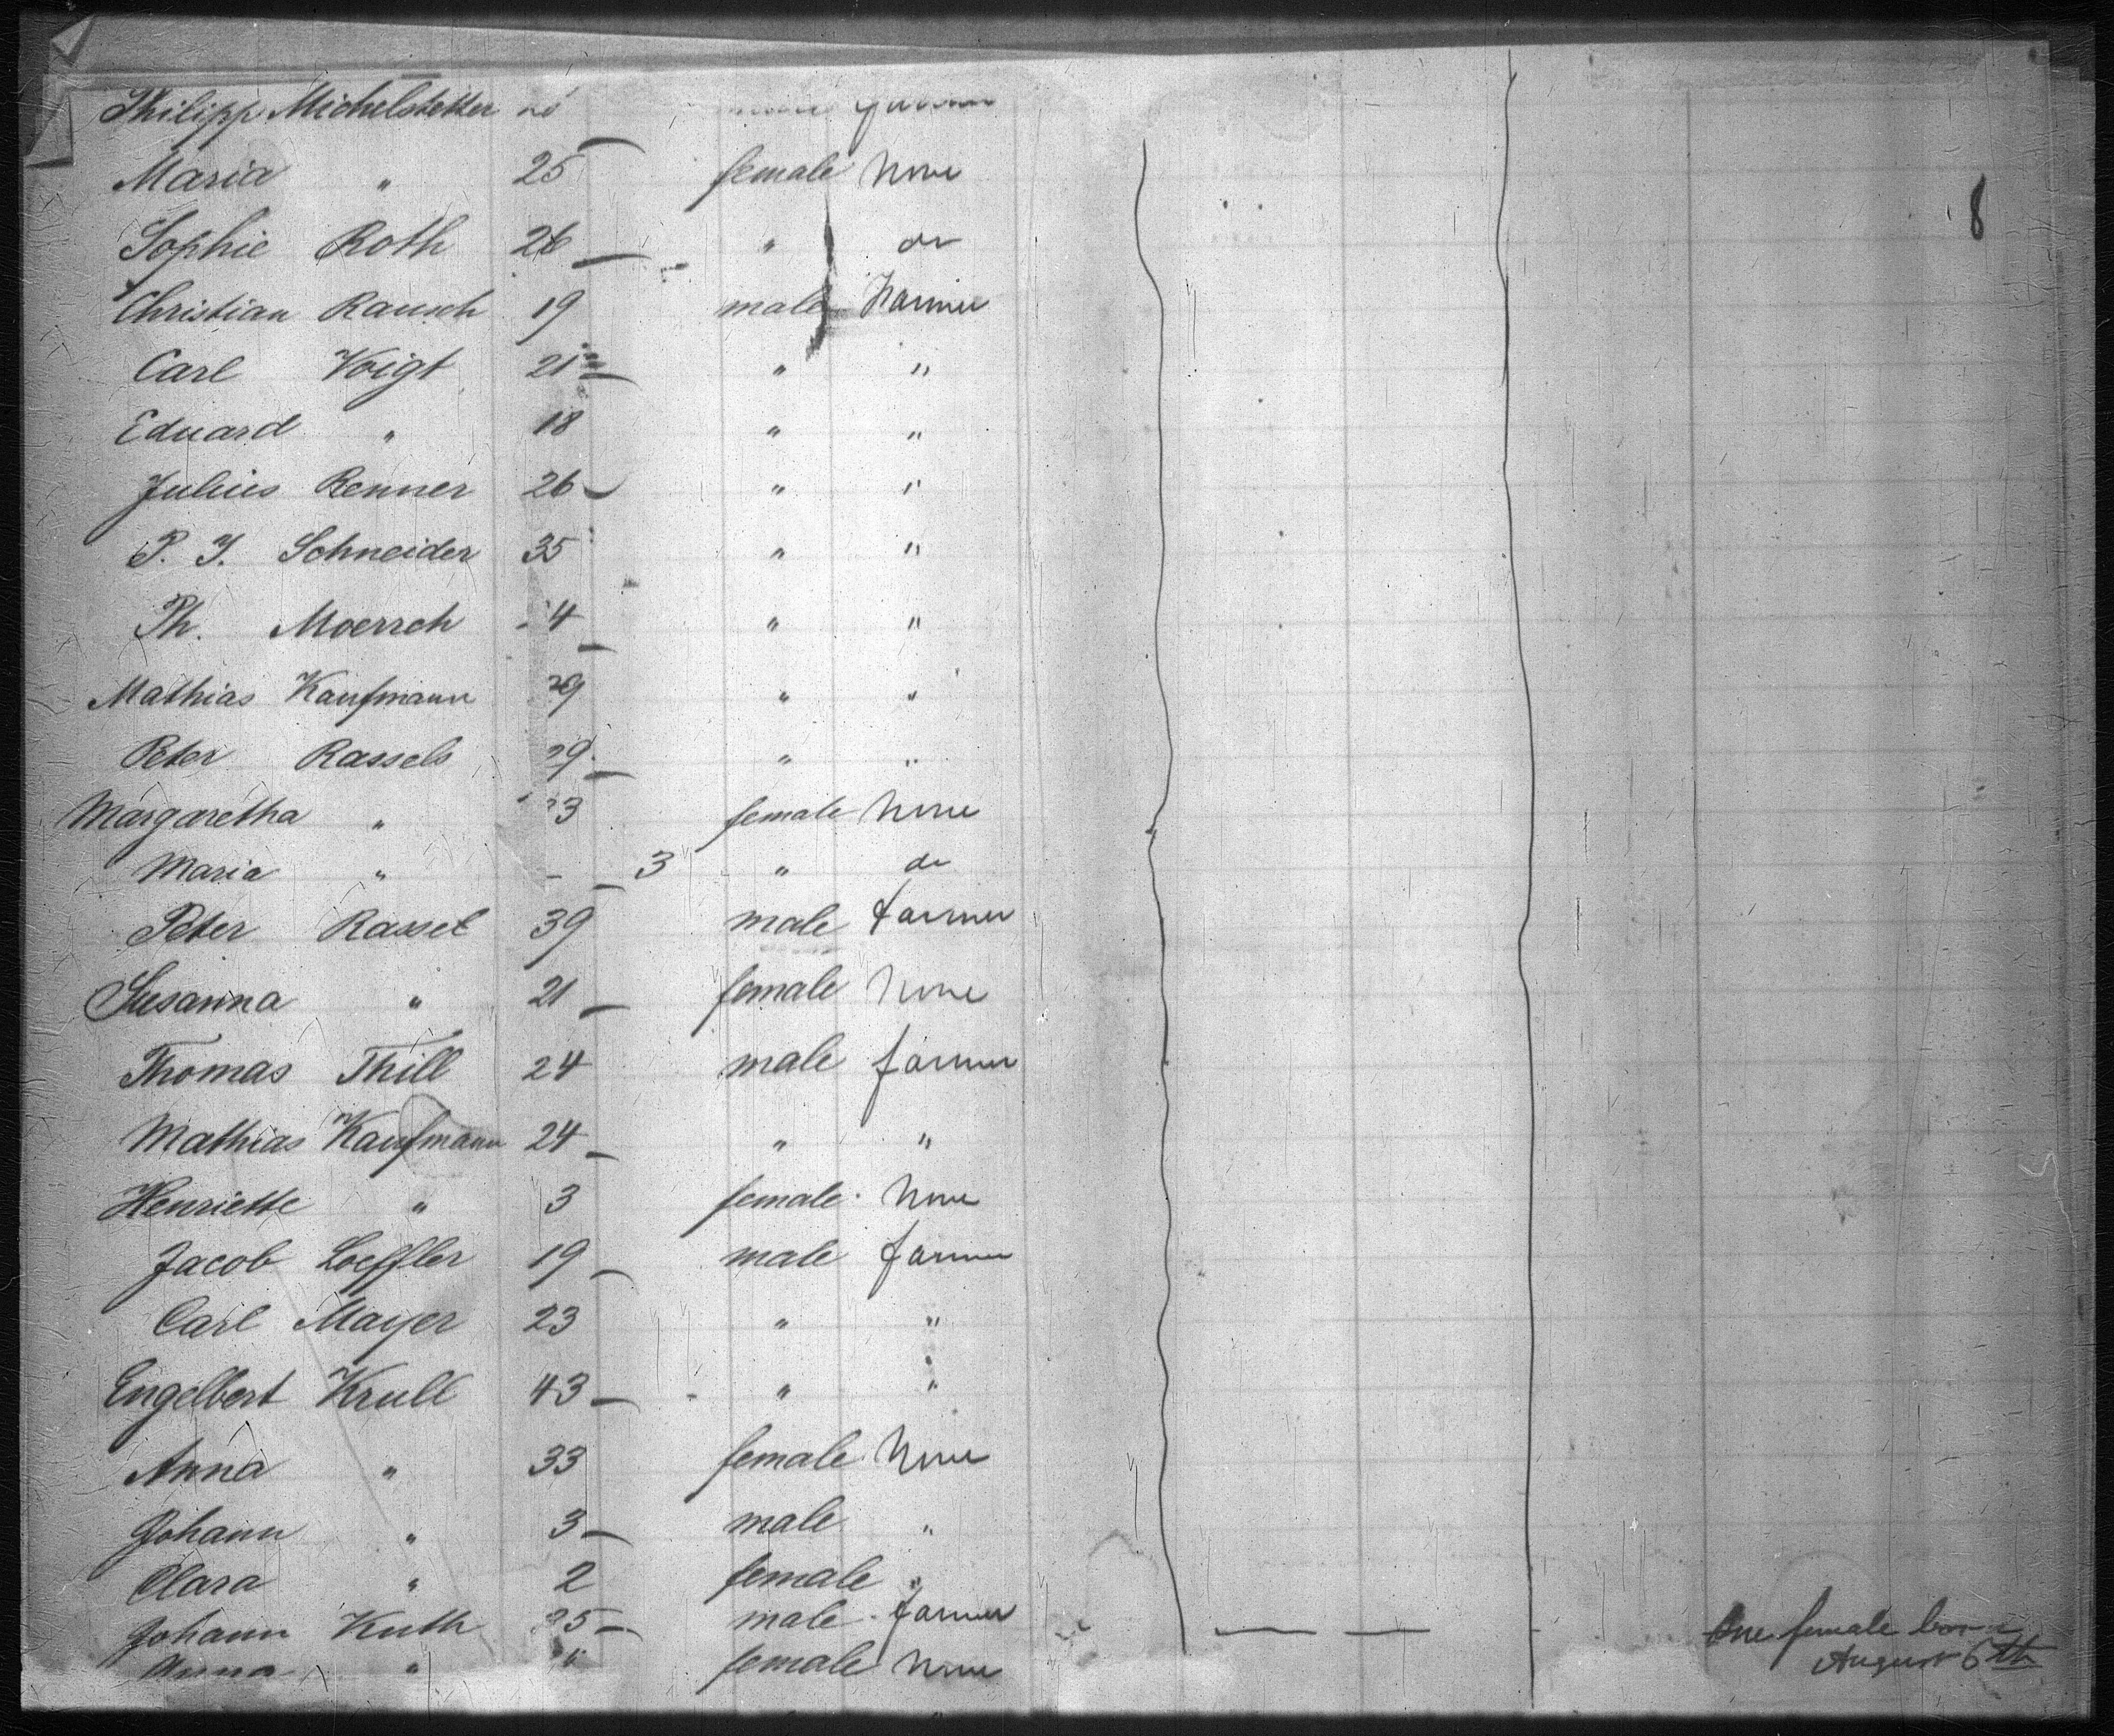 Philipp Michelstetter
Maria " 25 female None
8
Sophie Roth 26 " do
Christian Rausch 19 male Farmer
Carl Voigt 21 " "
Eduard " 18 " "
Julius Renner 26 " "
P. J. Schneider 35 " "
Ph. Moersch " "
Mathias Kaufmann 29 " "
Peter Rassels 29 " "
Margaretha " female None
Maria " - 3 " do
Peter Rassel 39 male Farmer
Susanna " 21 female None
Thomas Thill 24 male farmer
Mathias Kaufmann 24 " "
Henriette " 3 female None
Jacob Loeffler 19 male farmer
Carl Mayer 23 " "
Engelbert Krull 43 " "
Anna " 33 female None
Johann " 3 male "
Clara " 2 female "
Johann Kuth male farmer
One female born
Anna " female None
August 6th